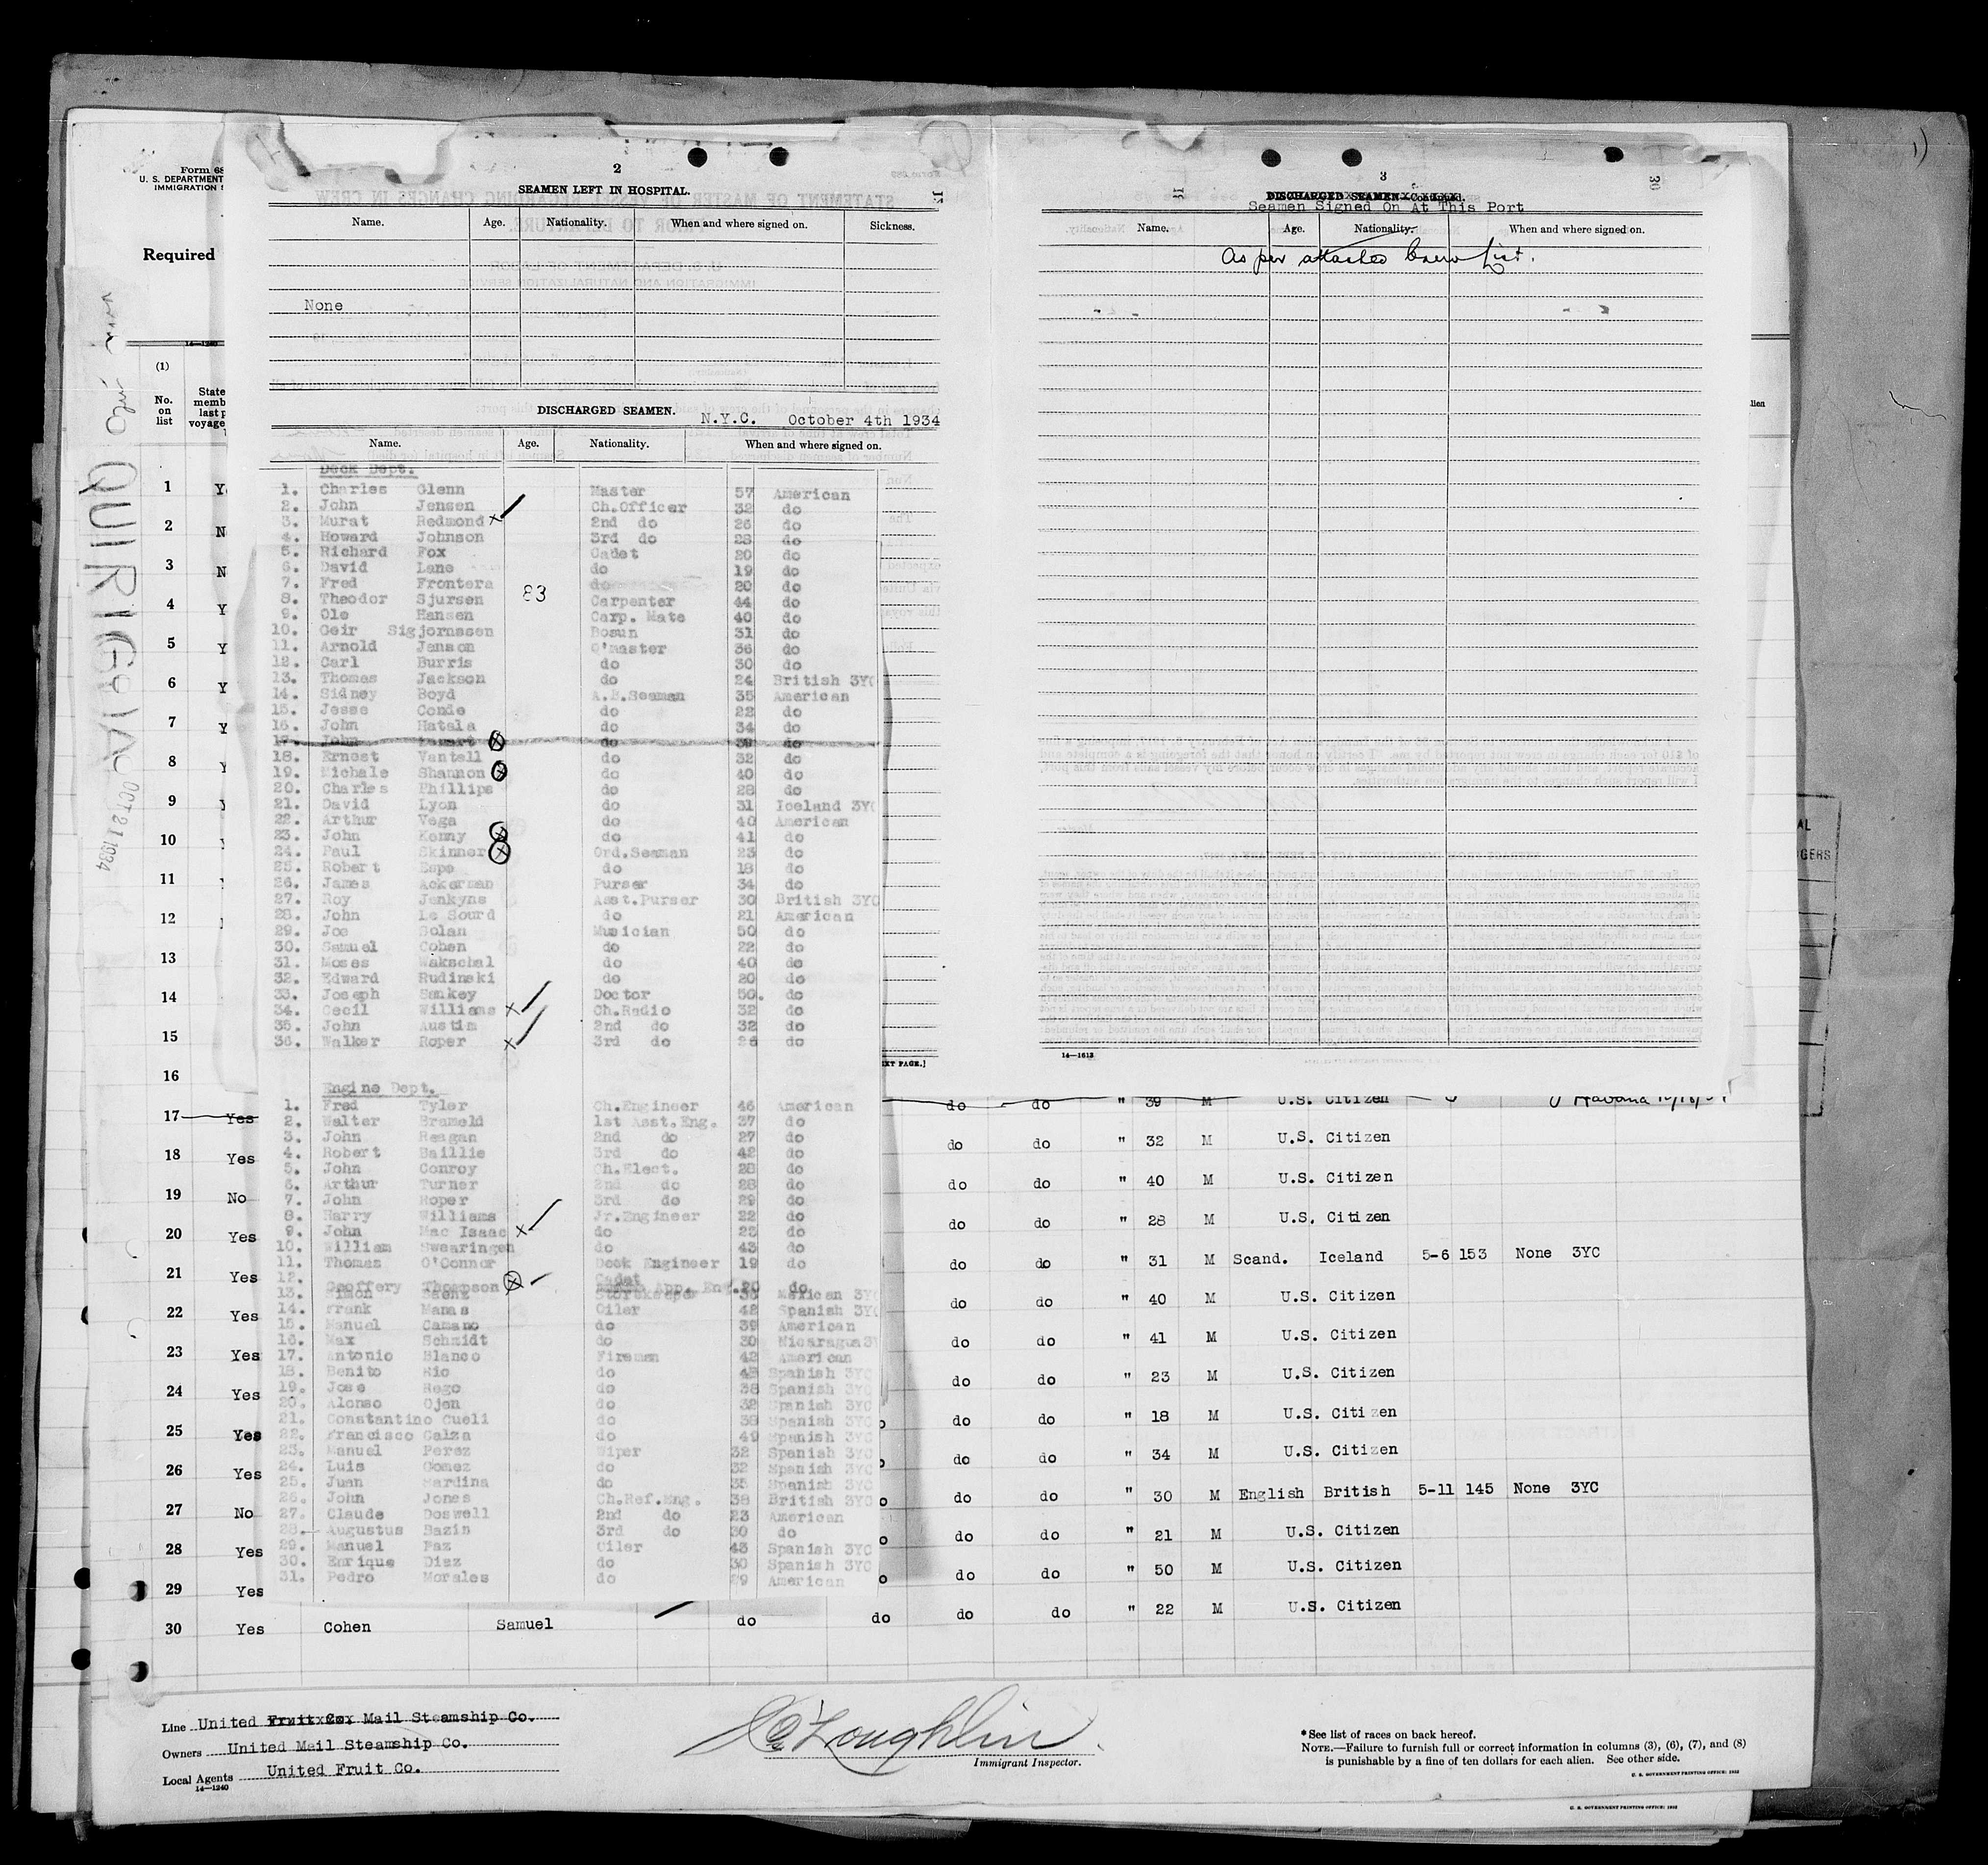 Form 68
U. S. DEPARTMENT
IMMIGRATION S
Required
14—1240
(1)
No. on list
State memb last p voyage
QUIRIGUA
OCT 21 1934
2
SEAMEN LEFT IN HOSPITAL.
Name. Age. Nationality. When and where signed on. Sickness.
None
DISCHARGED SEAMEN. N.Y.C. October 4th 1934
Name. Age. Nationality. When and where signed on.
Deck Dept.
1. Charles Glenn Master 57 American
2. John Jensen Ch.Officer 32 do
3. Murat Redmond x 2nd do 26 do
4. Howard Johnson 3rd do 28 do
5. Richard Fox Cadet 20 do
6. David Lane do 19 do
7. Fred Frontera do 20 do
83
8. Theodor Sjursen Carpenter 44 do
9. Ole Hansen Carp. Mate 40 do
10. Geir Sigjornssen Bosun 31 do
11. Arnold Janson Q'master 36 do
12. Carl Burris do 30 do
13. Thomas Jackson do 24 British 3YC
14. Sidney Boyd A.B.Seaman 35 American
15. Jesse Conde do 22 do
16. John Hatala do 34 do
17. John do 39 do
18. Ernest Vantell do 32 do
19. Michale Shannon do 40 do
20. Charles Phillips do 28 do
21. David Lyon do 31 Iceland 3YC
22. Arthur Vega do 40 American
23. John Kenny do 41 do
24. Paul Skinner Ord.Seaman 23 do
25. Robert Espe do 18 do
26. James Ackerman Purser 34 do
27. Roy Jenkyns Asst.Purser 30 British 3YC
28. John Le Sourd do 21 American
29. Joe Solan Musician 50 do
30. Samuel Cohen do 22 do
31. Moses Wakschal do 40 do
32. Edward Rudinski do 20 do
33. Joseph Sankey Doctor 50. do
34. Cecil Williams x Ch.Radio 32 do
35. John Austin 2nd do 32 do
36. Walker Roper x 3rd do 26 do
Engine Dept.
1. Fred Tyler Ch.Engineer 46 American
2. Walter Brameld 1st Asst.Eng. 37 do
3. John Reagan 2nd do 27 do
4. Robert Baillie 3rd do 42 do
5. John Conroy Ch.Elect. 28 do
6. Arthur Turner 2nd do 28 do
7. John Roper 3rd do 29 do
8. Harry Williams Jr.Engineer 22 do
9. John Mac Isaac x do 23 do
10. William Swearingen do 43 do
11. Thomas O'Connor Deck Engineer 19 do
12. Geoffery Thompson Cadet App. Eng. 20 do
13. Simon Saenz Storekeeper 36 Mexican 3Y
14. Frank Manas Oiler 42 Spanish 3YC
15. Manuel Camano do 39 American
16. Max Schmidt do 30 Nicaragua3Y
17. Antonio Blanco Fireman 42 American
18. Benito Rio do 43 Spanish 3YC
19. Jose Rego do 38 Spanish 3YC
20. Alonso Ojen do 32 Spanish 3YC
21. Constantino Cueli do 38 Spanish 3YC
22. Francisco Galza do 49 Spanish 3YC
23. Manuel Perez Wiper 32 Spanish 3YC
24. Luis Gomez do 32 Spanish 3YC
25. Juan Sardina do 35 Spanish 3YC
26. John Jones Ch.Ref.Eng. 38 British 3YC
27. Claude Doswell 2nd do 23 American
28. Augustus Bazin 3rd do 30 do
29. Manuel Paz Oiler 43 Spanish 3YC
30. Enrique Diaz do 30 Spanish 3YC
31. Pedro Morales do 29 American
3
DISCHARGED SEAMEN—Continued.
Seamen Signed On At This Port
Name. Age. Nationality. When and where signed on.
As per attached Crew List.
14—1613
XT PAGE.]
1 Y
2 N
3 N
4 Y
5 Y
6 Y
7 Y
8 Y
9
10
11
12
13
14
15
16
17 Yes do do " 39 M U.S. Citizen Havana
18 Yes do do " 32 M U.S. Citizen
19 No do do " 40 M U.S. Citizen
20 Yes do do " 28 M U.S. Citizen
21 Yes do do " 31 M Scand. Iceland 5-6 153 None 3YC
22 Yes do do " 40 M U.S. Citizen
23 Yes do do " 41 M U.S. Citizen
24 Yes do do " 23 M U.S. Citizen
25 Yes do do " 18 M U.S. Citizen
26 Yes do do " 34 M U.S. Citizen
27 No do do " 30 M English British 5-11 145 None 3YC
28 Yes do do " 21 M U.S. Citizen
29 Yes do do " 50 M U.S. Citizen
30 Yes Cohen Samuel do do do do " 22 M U.S. Citizen
Line United Fruit Co. Mail Steamship Co.
Owners United Mail Steamship Co.
Local Agents United Fruit Co.
14—1240
Immigrant Inspector.
*See list of races on back hereof.
NOTE.—Failure to furnish full or correct information in columns (3), (6), (7), and (8)
is punishable by a fine of ten dollars for each alien. See other side.
U. S. GOVERNMENT PRINTING OFFICE: 1932
U. S. GOVERNMENT PRINTING OFFICE: 1932